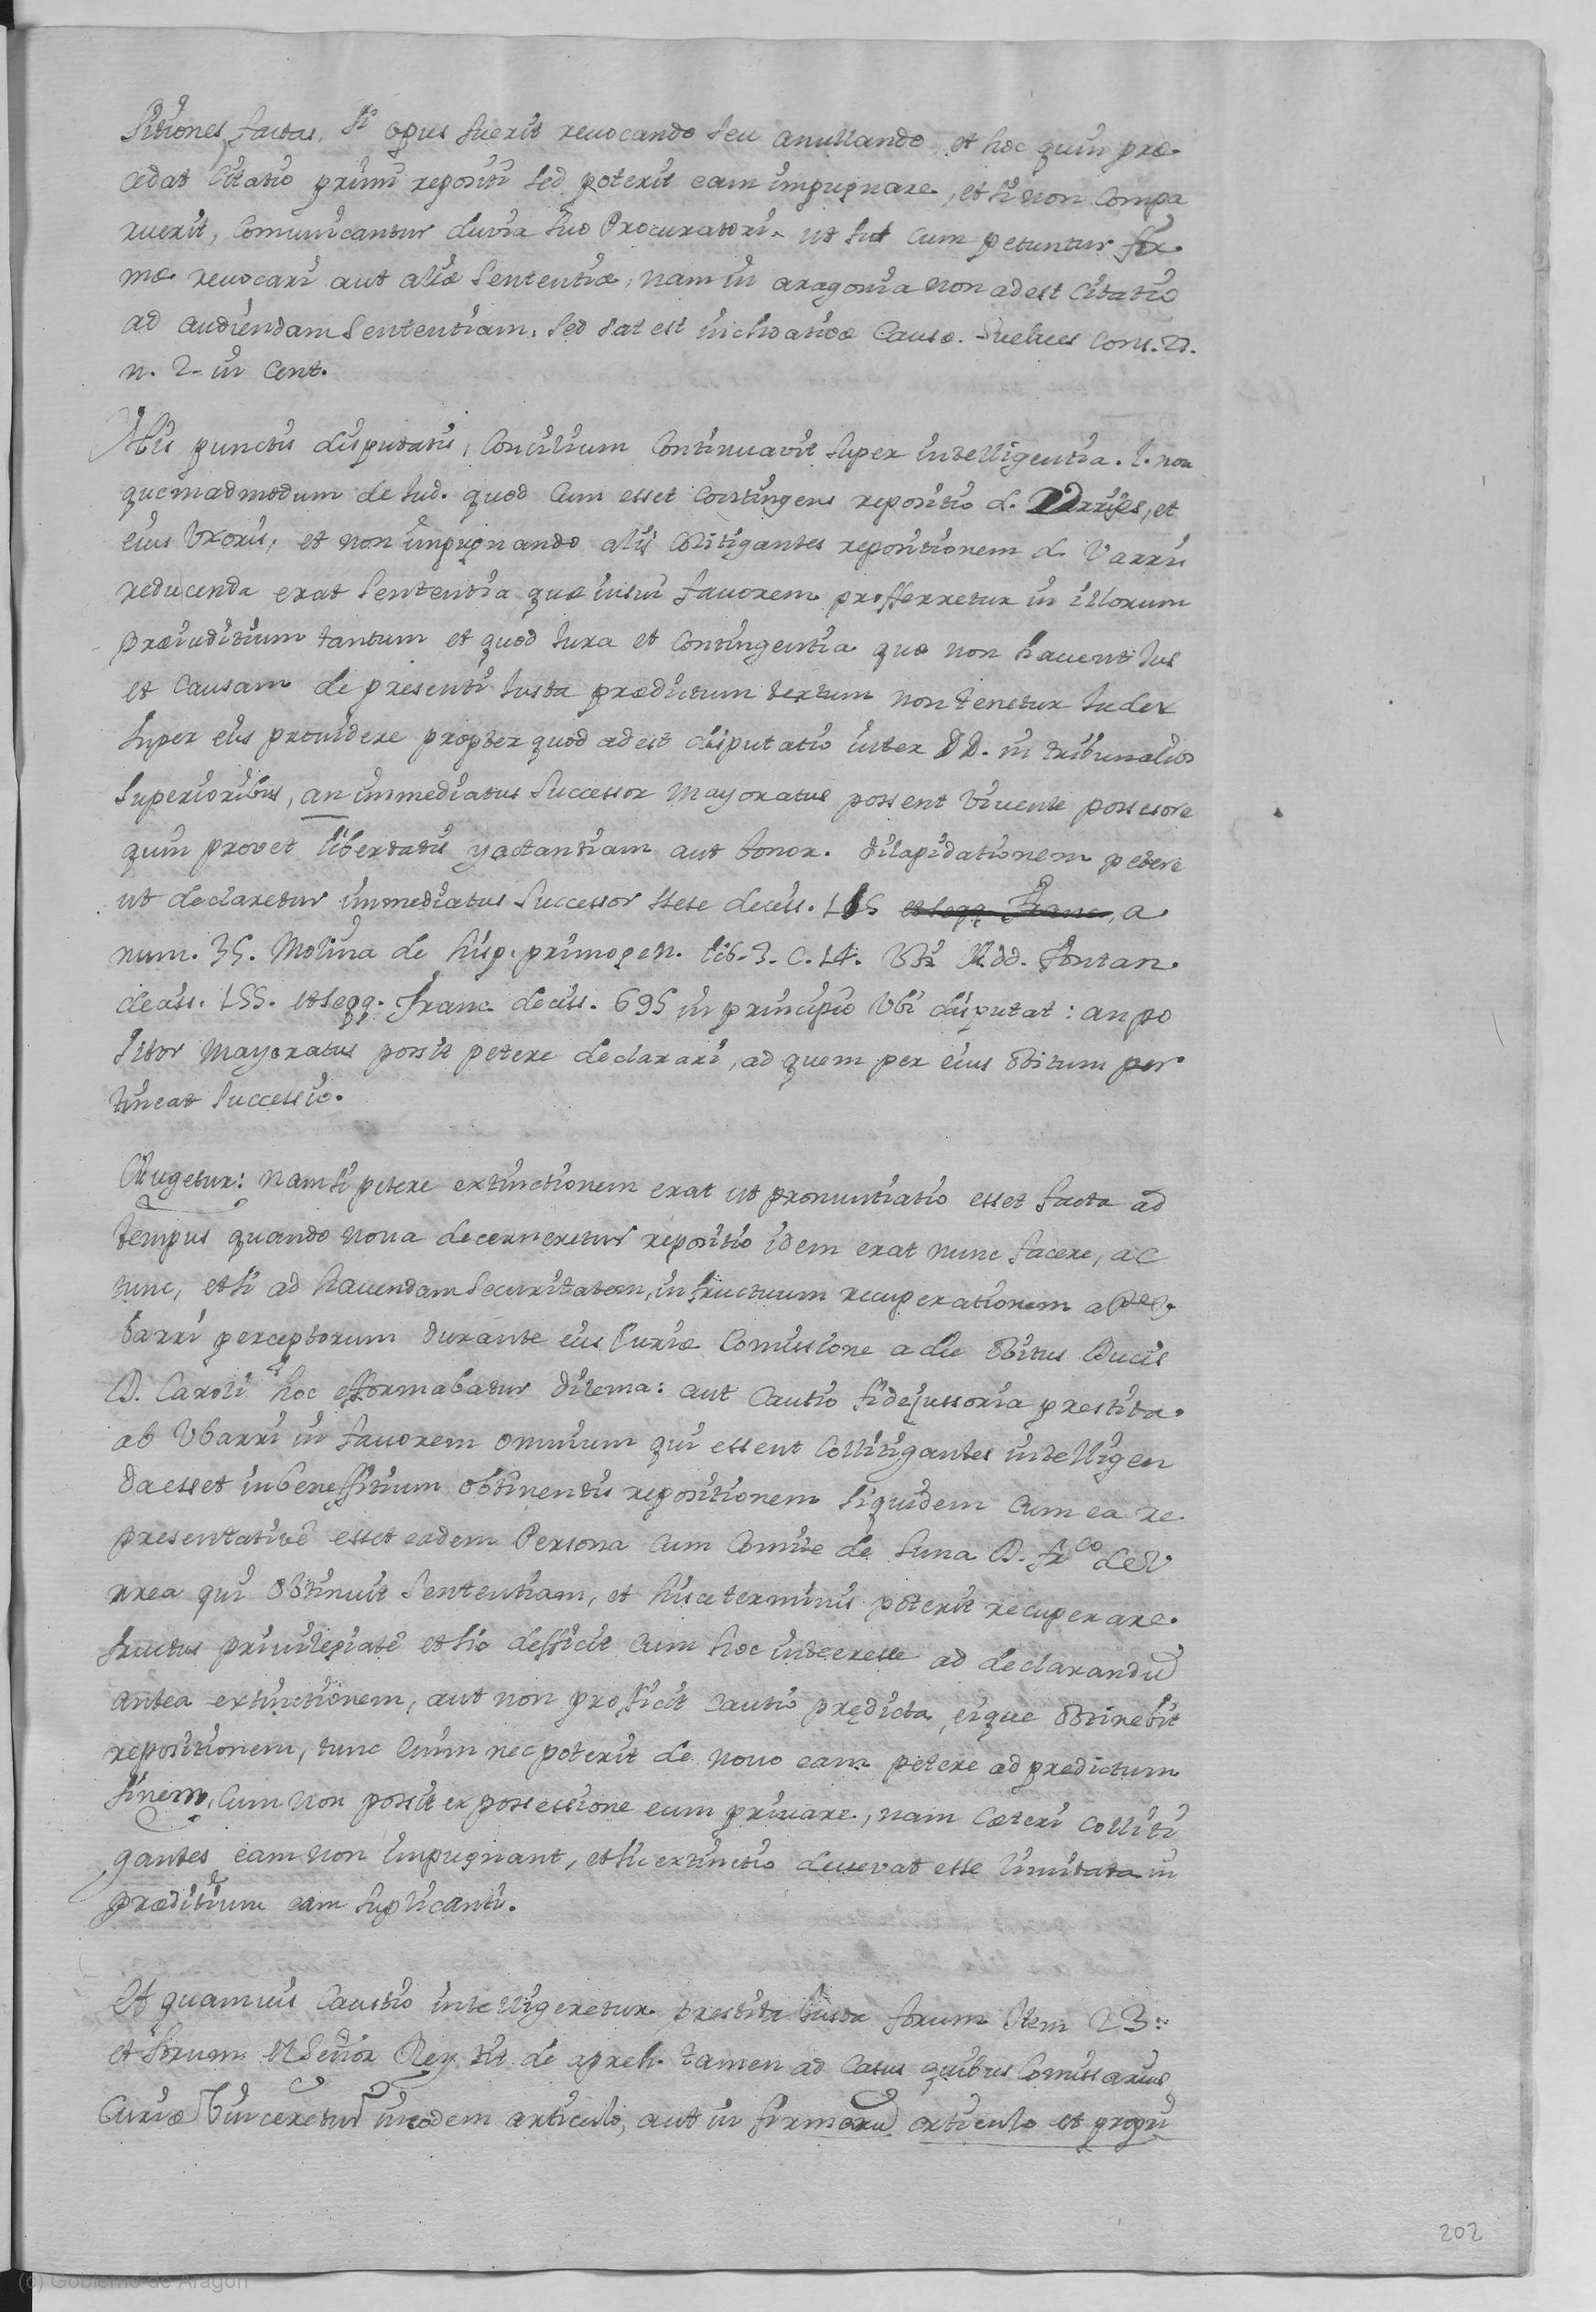 sitiones factas, si opus fuerit reuocando seu anullando, et hoc quin præ-
cedat citatio primi repositi sed poterit eam impugnare, et si non compa
ruerit, comunicantur duvia suo Procuratori, ut fit cum petuntur fir-
mæ reuocari aut aliæ sententiæ, nam in aragonia non adest citatio
ad audiendam sententiam, sed sat est inchoativæ causæ. Suelues cons. 21.
n. 2. in cent.
His punctis disputatis, Concilium continuavit super intelligentia. l. non
quemadmodum de Iud. quod cum esset contingens repositio d. Urries, et
eius Uxoris, et non impugnando alij colitigantes repositionem d. Varri
reducenda erat sententia quæ in sui fauorem profferretur in illorum
præiuditium tantum et quod iura et contingentia quæ non hauent ius
et causam de presenti iusta prædictum textum non tenetur Iudex
super eis prouidere propter quod adest disputatio inter DD. in tribunalib.
superioribus, an immediatus successor mayoratus possent viuente possesore
quin provet libertatis yactantiam aut bonor. dilapidationem petere
ut declaretur immediatus successor sese deciss. 115 et seqq. Franc, a
num. 35. Molina de hisp. primogen. lib. 3. c. 14. Ubi Add. Fontan.
deciss. 155. et seqq. Franc. deciss. 695 in principio Ubi disputat: an po
sitor mayoratus possit petere declarari, ad quem per eius obitum per
tineat successio.
Augetur: nam si petere extinctionem erat ut pronuntiatio esset facta ad
tempus quando noua decerneretur repositio idem erat nunc facere, ac
tunc, et si ad hauendam securitatem, in fructuum recuperationem a
barri perceptorum durante eius Curiæ Comissione a die obitus Ducis
D. Caroli hoc efformabatur dilema: aut cautio fidejussoria prestita
ab Vbarri in fauorem omnium qui essent collitigantes intelligen
da esset in beneffitium obtinentis repositionem siquidem cum ea re
presentativê esset eadem Persona cum Comite de Luna D. frco de V
rrea qui obtinuit sententiam, et hisce terminis poterit recuperare
fructus priuilegiatê et sic defficit cum hoc interesse ad declarandũ
antea extinctionem, aut non proficit cautio prędicta, eique obtinebit
repositionem, tunc enim nec poterit de nouo eam petere ad predictum
finem, cum non possit ex possessione eum priuare, nam cæteri colliti
gantes eam non impugnant, et sic extinctio deuevat esse limitata in
præditium eam suplicanti.
Et quamuis cautio intelligeretur prestita iusta forum Item 23:
et forum El Señor Rey tit de apreh. tamen ad casus quibus Comissarius
Curiæ vinceretur in eodem articulo, aut in firmarũ articulo et propri
202
(c) Gobierno de Aragón